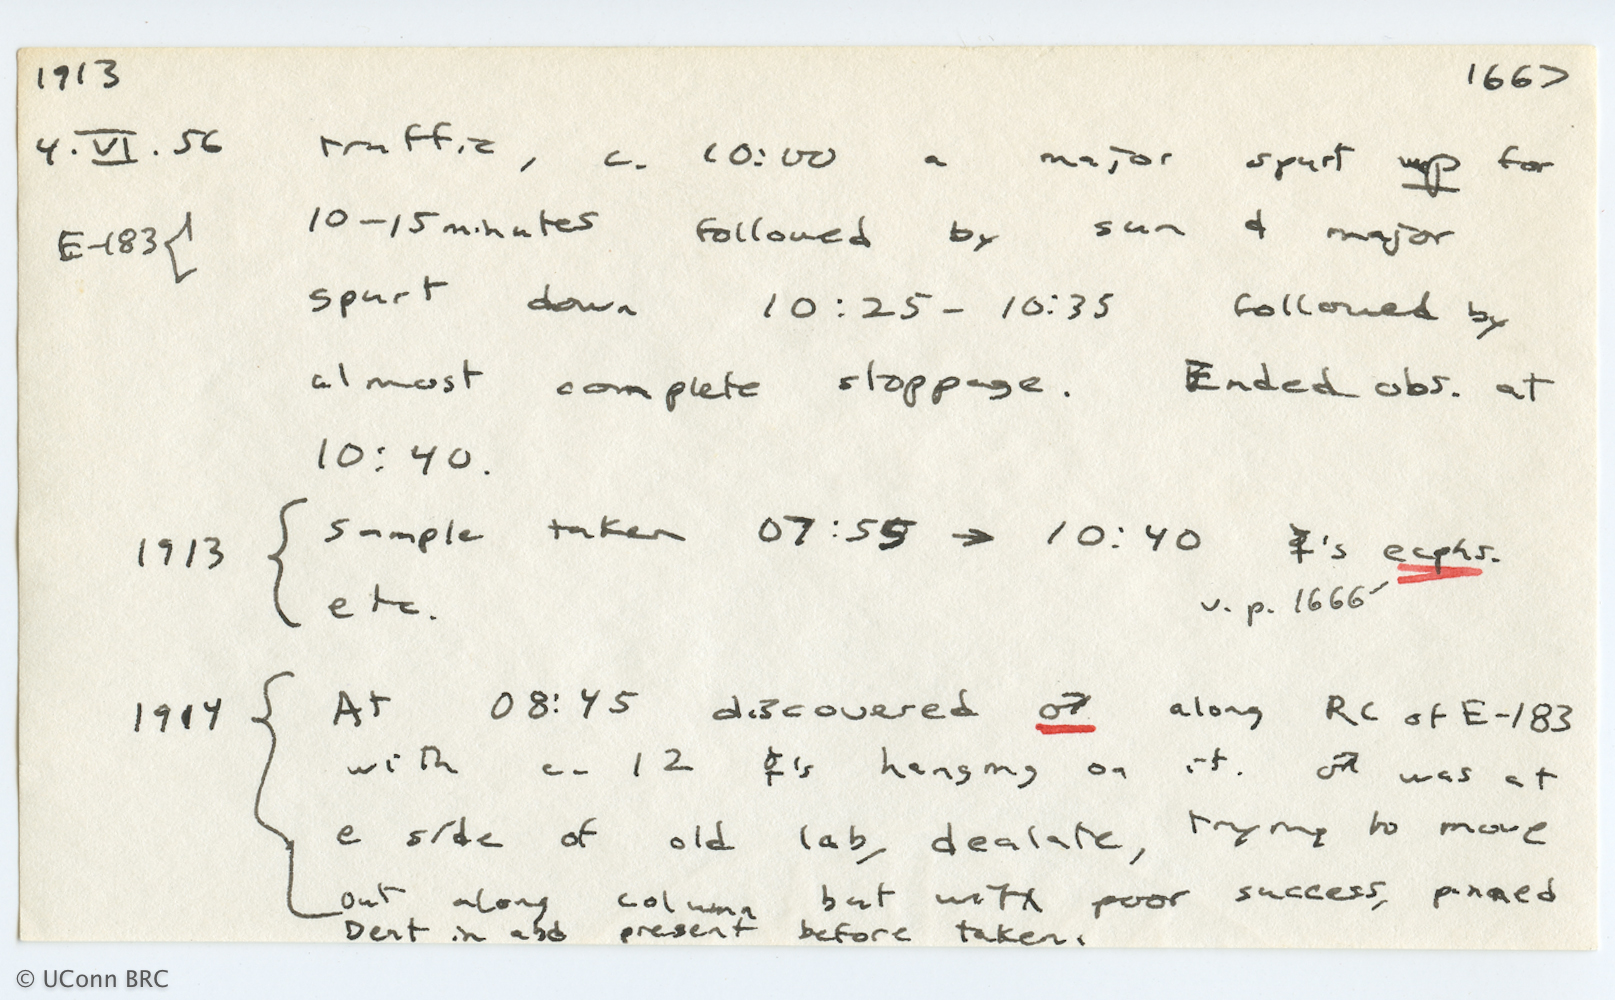 1913 1667
4.VI.56 traffic, c. 10:00 a major spurt up for
E-183{ 10-15 minutes followed by sun & major
spurt down 10:25 - 10:35 followed by
almost complete stoppage. Ended obs. at
10:40.
1913 { sample taken 07:55 → 10:40 ☿'s ecphs.
etc. v. p. 1666
1914 { At 08:45 discovered ♂ along RC of E-183
with c. 12 ☿'s hanging on it. ♂ was at
e side of old lab, dealate, trying to move
out along column but with poor success, pinned
Dent in abd present before taken.
© UConn BRC